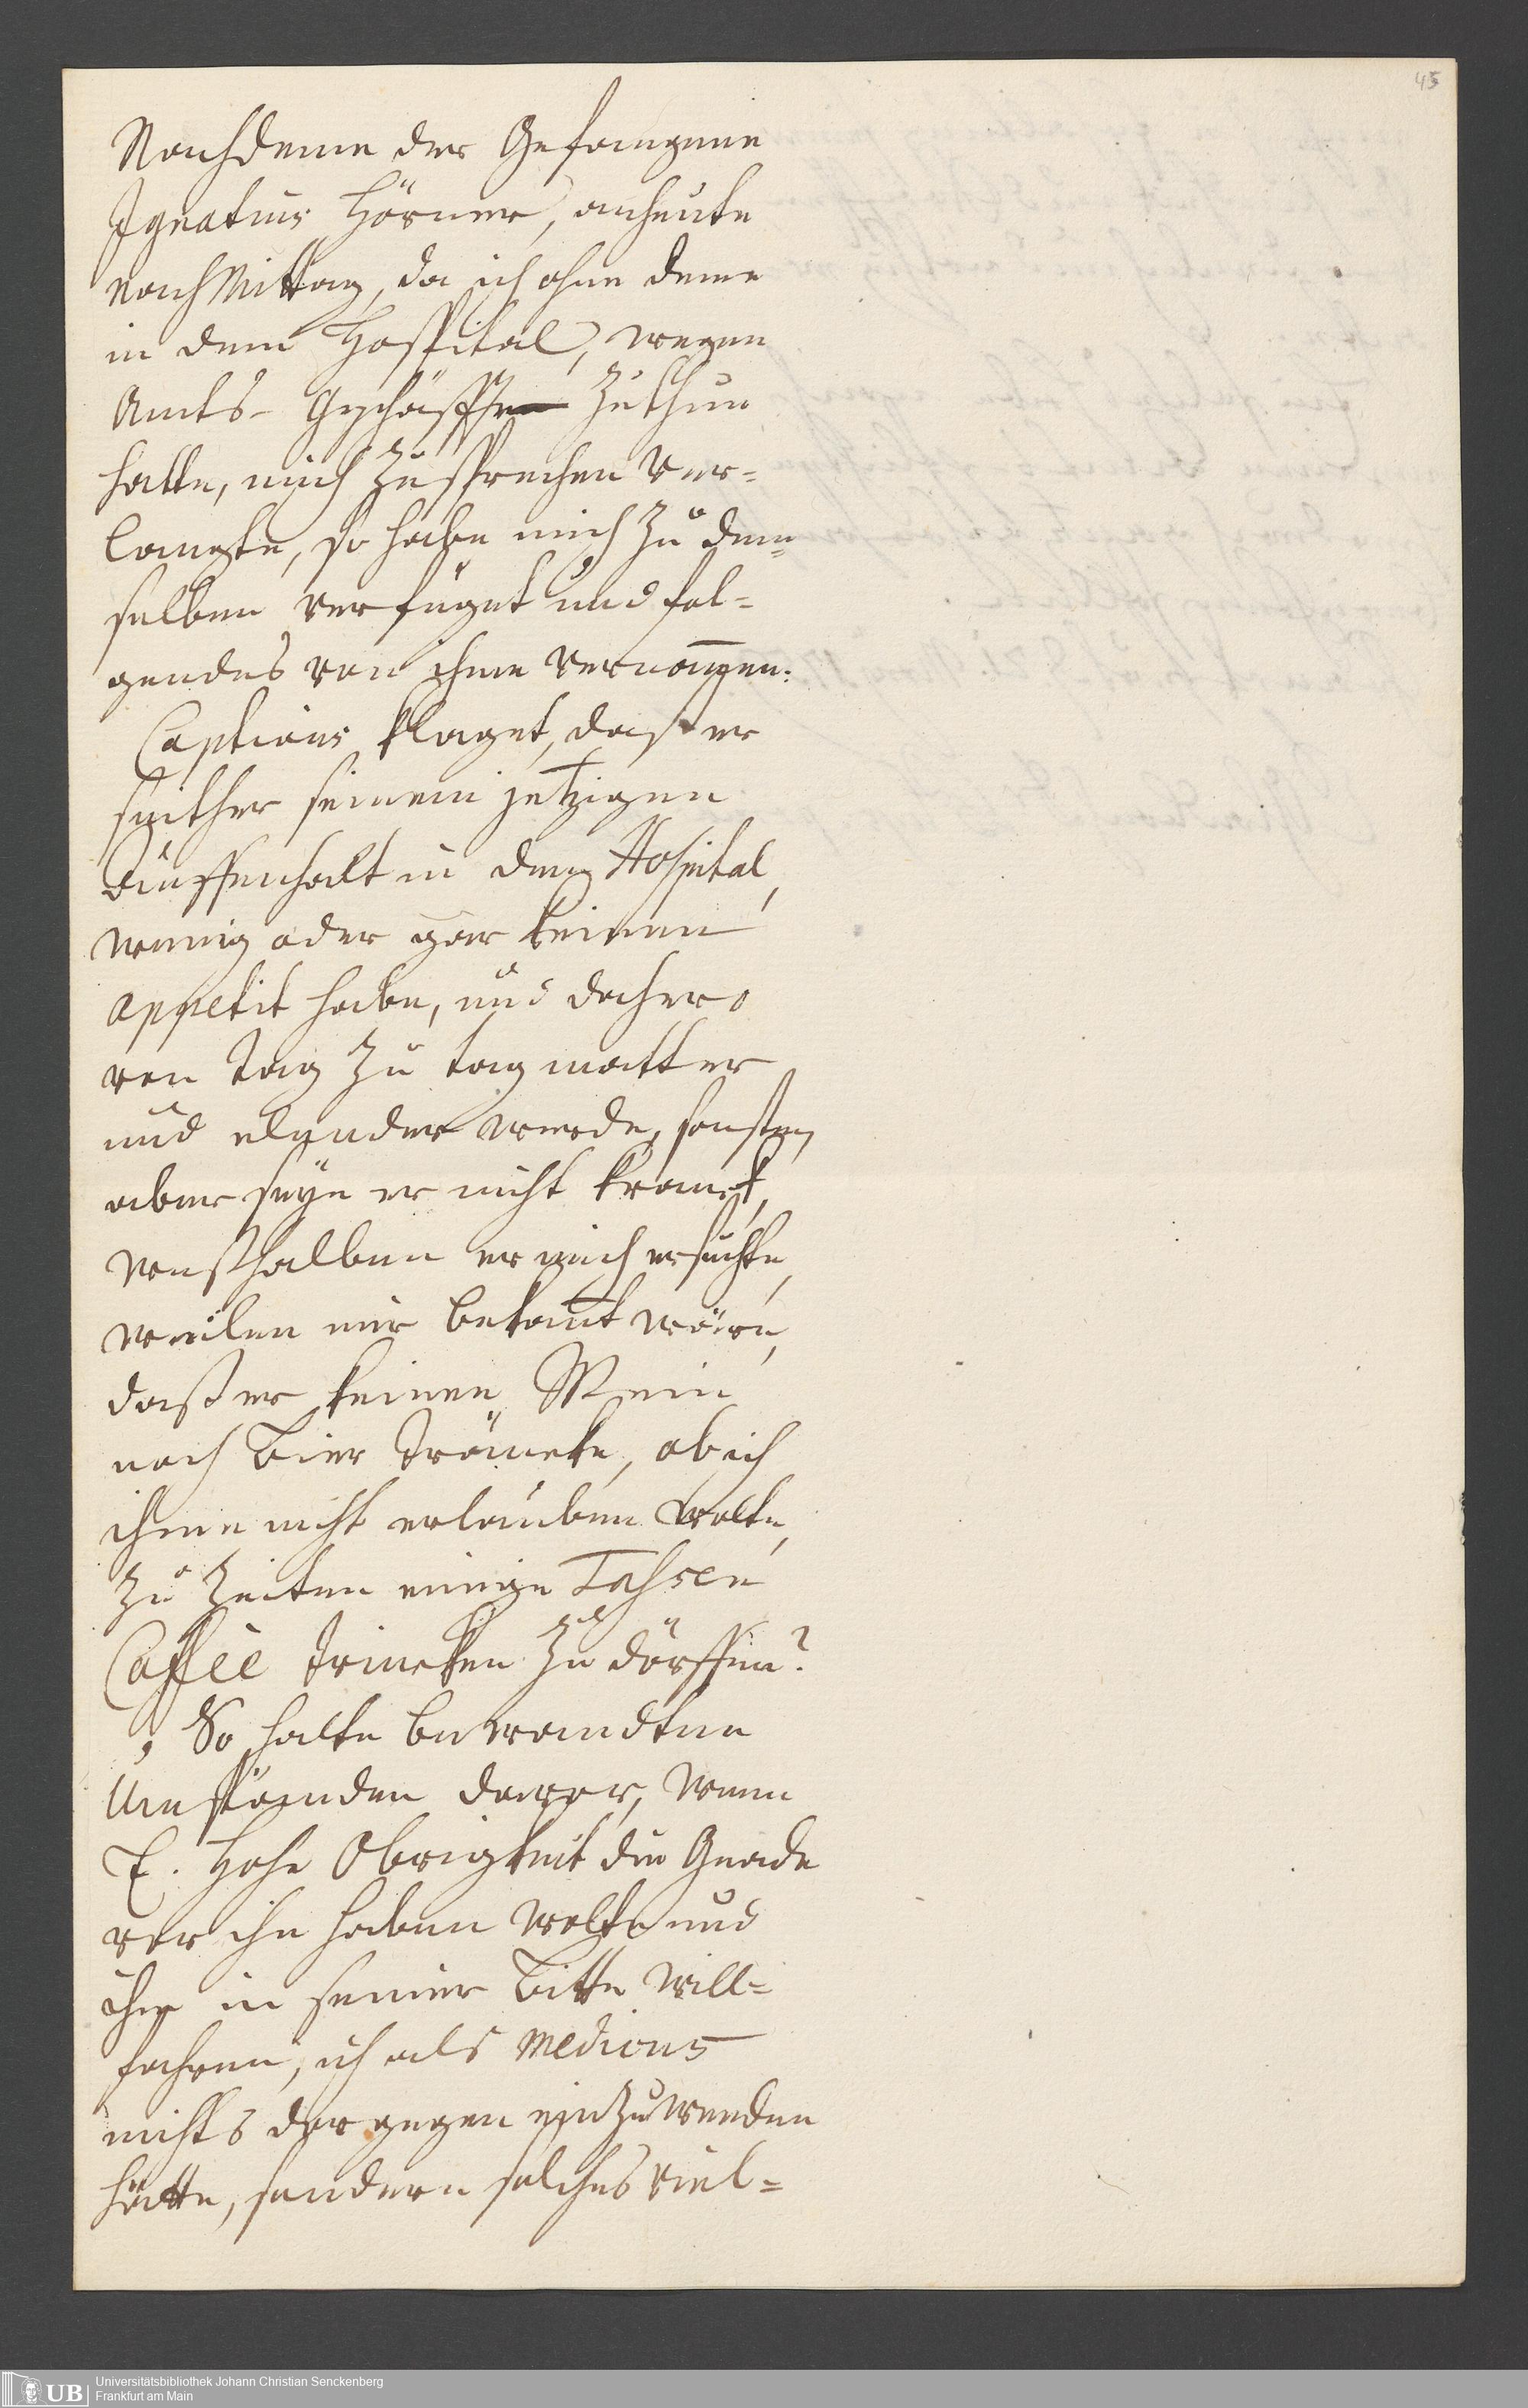 45
Nachdeme der Gefangene
Ignatius Hörner, anheute
nach Mittag, da ich ohne deme
in dem Hospital, wegen
Amts-Geschäfften zu thun
hatte, mich zu sprechen ver=
langte, so habe mich zu dem=
selben verfüget und fol=
gendes von ihme vernom̅en:
Captivus klaget, daß er
seither seinem jetzigen
Auffenhalt in dem Hospital,
wenig oder gar keinen
appetit habe, und dahero
von Tag zu tag matter
und elender werde, sonsten
aber seye er nicht kranck,
weßhalben er mich ersuchte,
weilen mir bekan̅t wäre,
daß er keinen Wein
noch Bier träncke, ob ich
ihme nicht erlauben wolte,
zu Zeiten einige Tassen
Caffée trincken zu dörffen?
So halte bewandten
Umständen davor, wenn
E. Hohe Obrigkeit die Gnade
vor ihn haben wolte und
ihm in seiner Bitte will=
fahren, ich als Medicus
nichts dargegen einzuwenden
hätte, sondern solches viel=
UB
Universitätsbibliothek Johann Christian Senckenberg
Frankfurt am Main